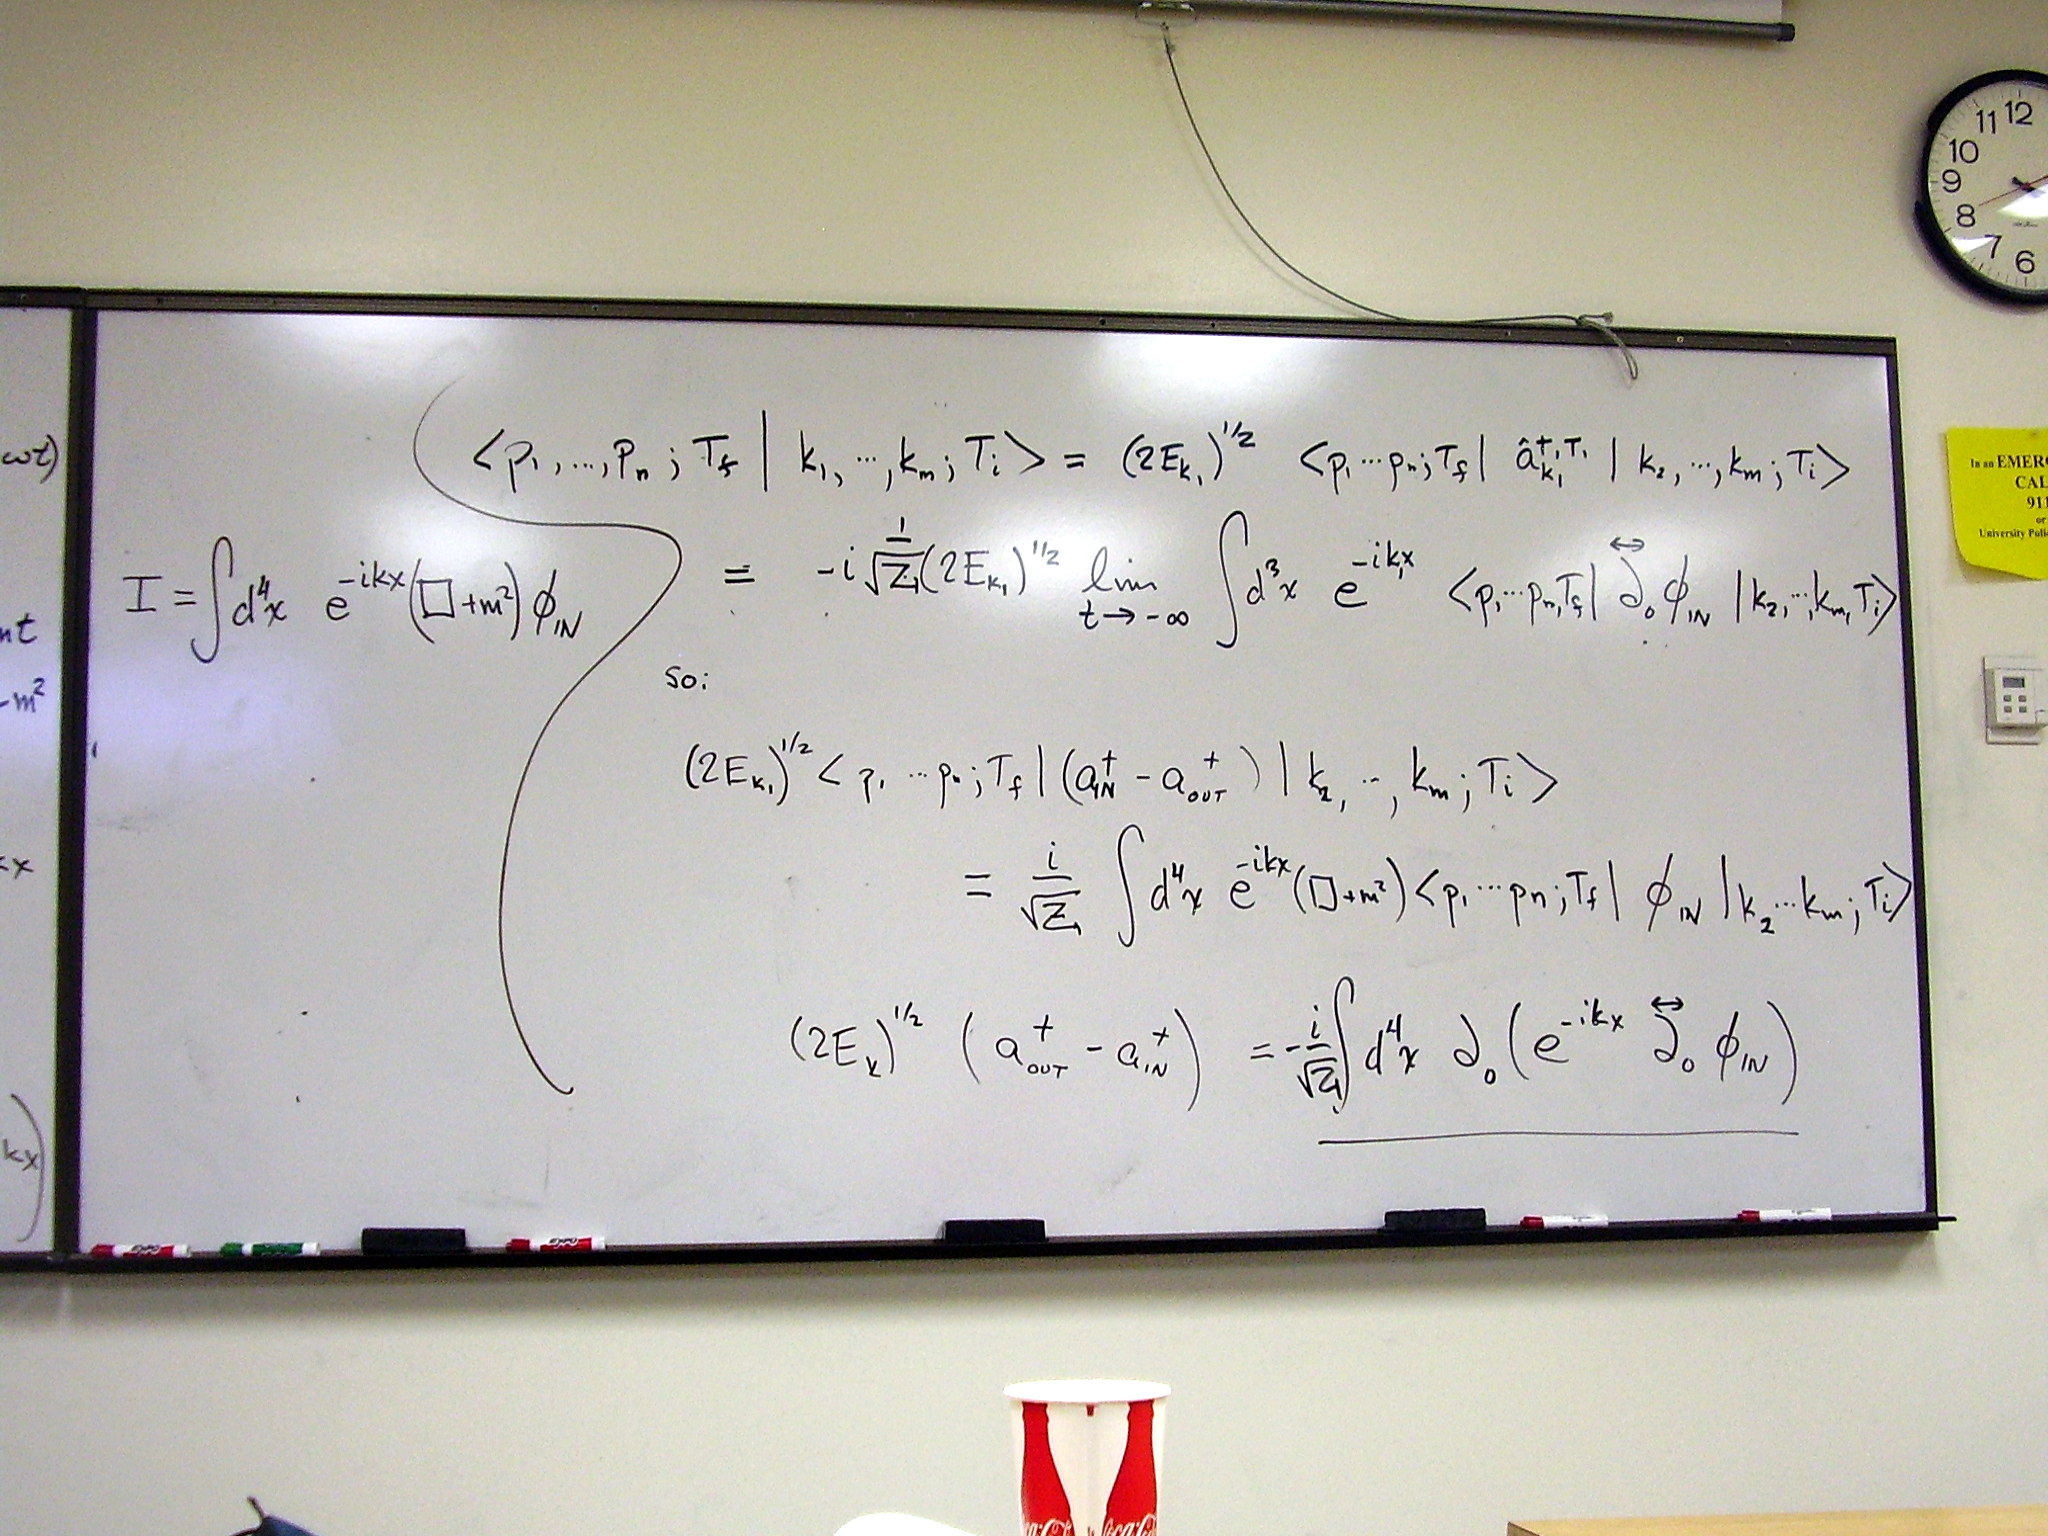 11 12
10
9
8
7
6
ωt)
⟨p₁,...,pₙ; T_f | k₁,...,kₘ; Tᵢ⟩ = (2E_{k₁})^{1/2} ⟨p₁...pₙ; T_f | â_{k₁}^{†,Tᵢ} | k₂,...,kₘ; Tᵢ⟩
I = ∫d⁴x e^{-ikx}(□+m²)ϕ_{IN}
= -i 1/√Z (2E_{k₁})^{1/2} lim_{t→-∞} ∫d³x e^{-ik₁x} ⟨p₁...pₙ,T_f| ∂₀^{↔} ϕ_{IN} |k₂,...,kₘ,Tᵢ⟩
nt
-m²
so:
(2E_{k₁})^{1/2} ⟨p₁...pₙ; T_f | (a†_{IN} - a†_{OUT}) | k₂,...,kₘ; Tᵢ⟩
kx
= i/√Z ∫d⁴x e^{-ikx}(□+m²)⟨p₁...pₙ; T_f | ϕ_{IN} | k₂...kₘ; Tᵢ⟩
(2E_k)^{1/2} (a†_{OUT} - a†_{IN}) = -i/√Z ∫d⁴x ∂₀(e^{-ikx} ∂₀^{↔} ϕ_{IN})
kx)
In an EMERG
CAL
911
or
University Polic